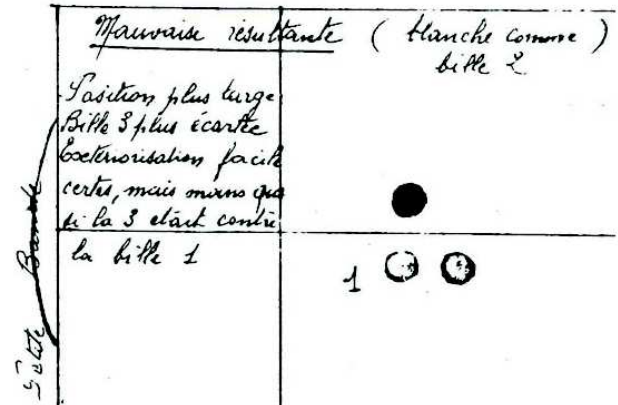 Mauvaise résultante ( blanche comme )
bille 2
Position plus large
Bille 3 plus écartée
Exteriorisation facile
certes, mais moins que
si la 3 était contre
la bille 1
Petite Bande
1